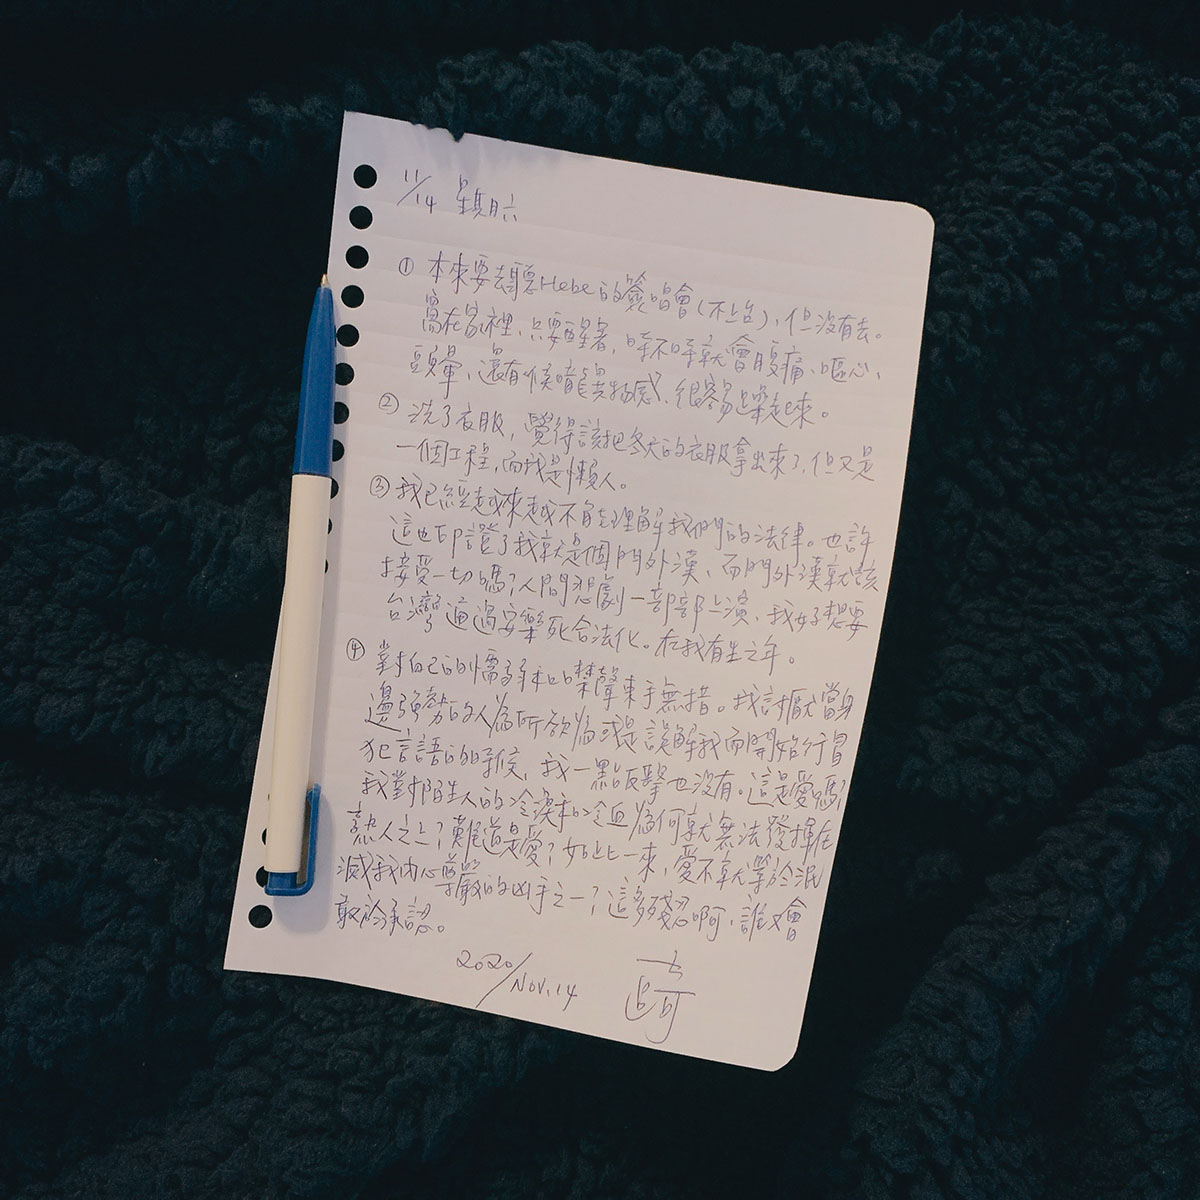 11/14 星期六
① 本來要去聽Hebe的簽唱會(不上台)、但沒有去。
窩在家裡、只要醒著,時不時就會腹痛、嘔心、
頭暈、還有喉嚨異物感、很容易喘起來。
② 洗了衣服,覺得該把冬天的衣服拿出來了,但又是
一個工程,而我是懶人。
③ 我已經越來越不能理解我們的法律。也許
這也印證了我就是個門外漢、而門外漢就該
接受一切嗎?人間悲劇一部部上演、我好想要
台灣通過安樂死合法化。在我有生之年。
④ 對自己的懦弱和噤聲束手無措。我討厭當身
邊強勢的人為所欲為或是誤解我而開始行冒
犯言語的時候、我一點反擊也沒有。這是愛嗎?
我對陌生人的冷漠和冷血為何就無法發揮在
熟人之上?難道是愛?如此一來,愛不就等於泯
滅我內心尊嚴的凶手之一?這多殘忍啊、誰又會
敢於承認。
2020/Nov.14